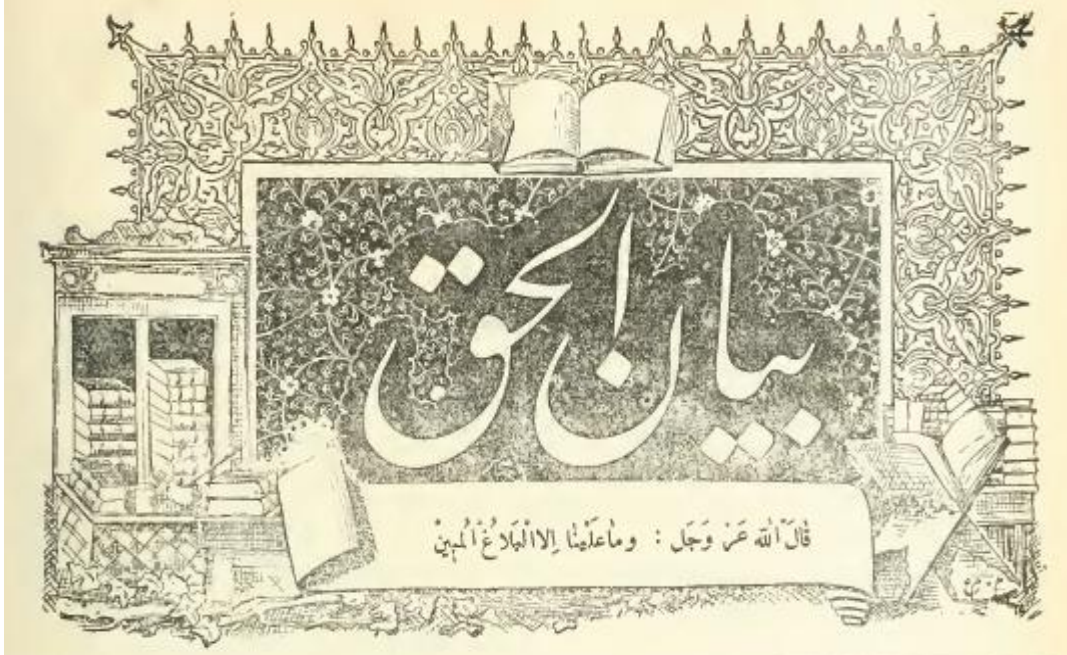 بيان الحق
قَالَ اللّٰه عَزَ وَجَل : وَمَاعَلَيْنَا اِلاالْبَلَاغُ الْمُبِيْنْ